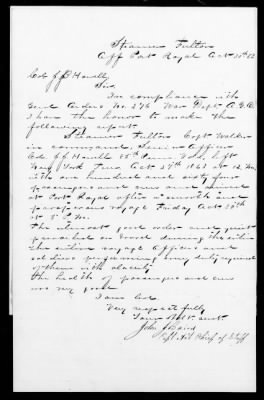 Steamer Fulton
Off Port Royal Oct 30th 63
Col J B Howell
Sir,
In compliance with
Genl Orders No. 276 War Dept A.G.O.
I have the honor to make the
following report
Steamer Fulton Capt Walker
in command, Senior Officer
Col J B Howell 85th Penn Vols, left
New York Tues Oct 27th 1863 at 12 M,
with one hundred and sixty four
passengers and crew and arrived
at Port Royal after a smooth and
prosperous voyage Friday Oct 30th
at 5 P.M.
The utmost good order and quiet
prevailed on board during the
entire voyage Officers and
soldiers performing any duty required
of them with alacrity
The health of passengers and crew
was very good
I am Col.
Very respectfully
Your Obt. Servt.
John
Capt Chief of Staff